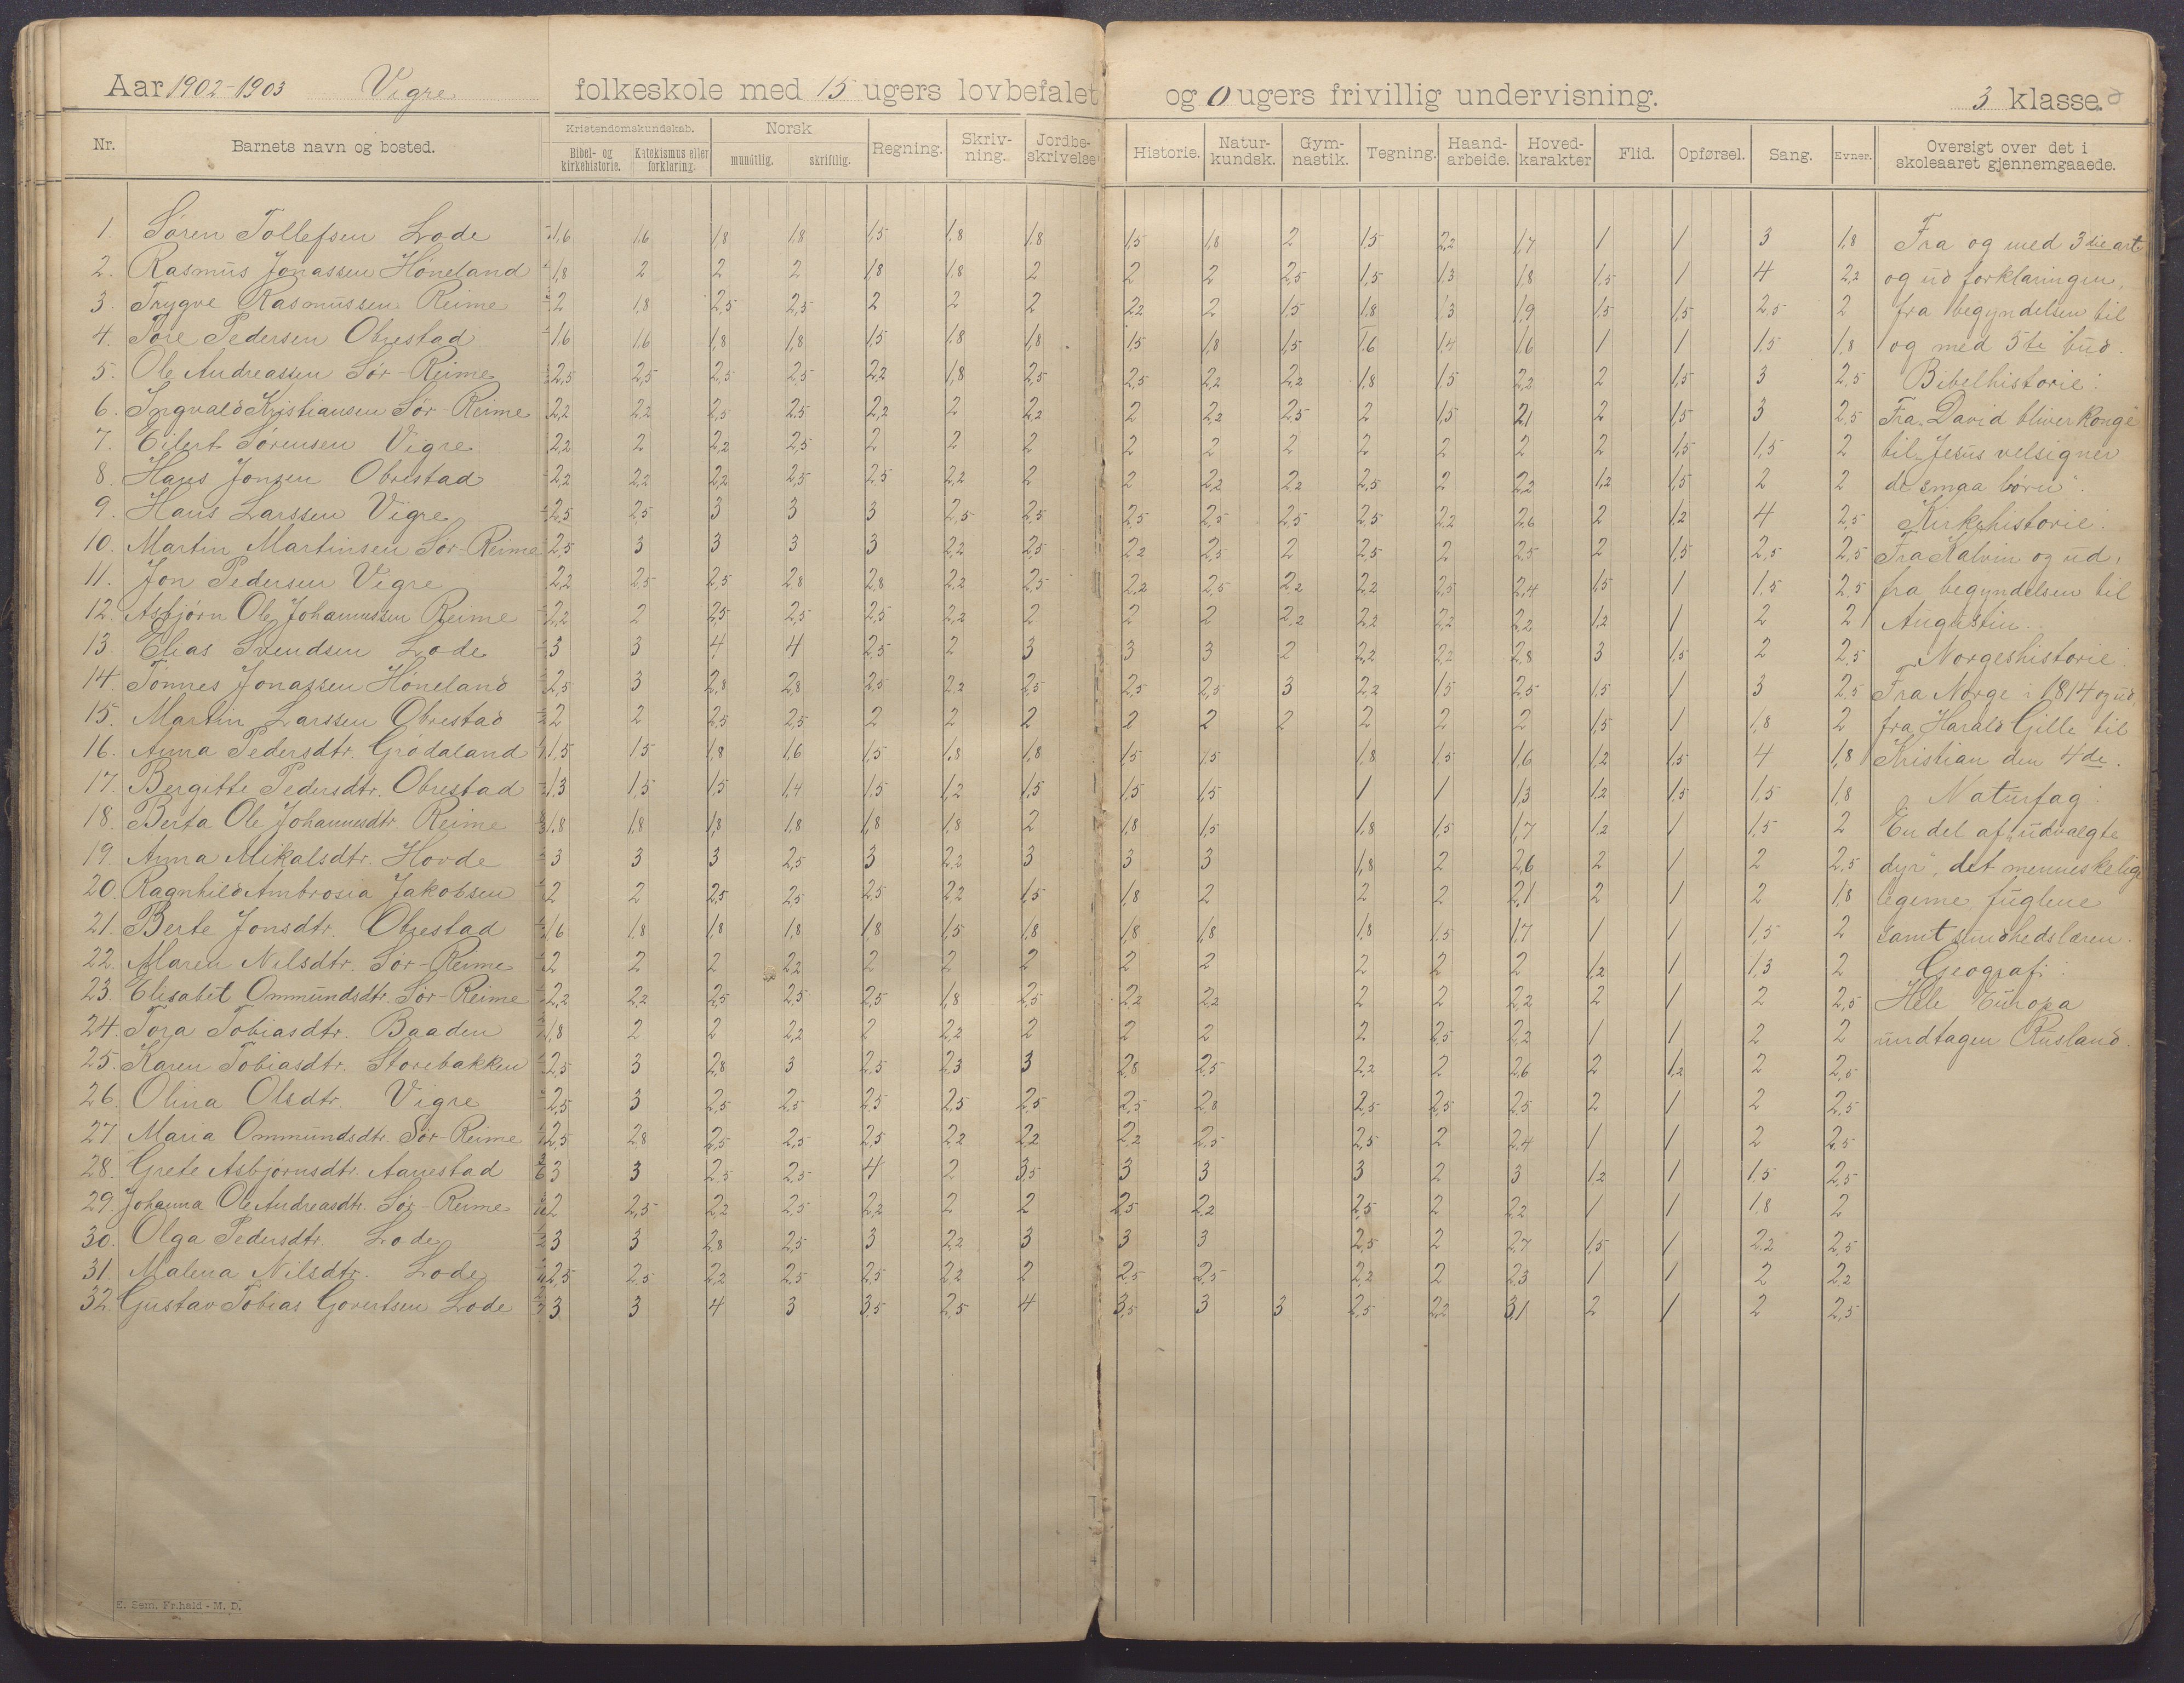 Aar 1902-1903 Vigre folkeskole med 15 ugers lovbefalet og 0 ugers frivillig undervisning. 3 klasse.
Nr. Barnets navn og bosted. Kristendomskundskab. Bibel- og kirkehistorie. Katekismus eller forklaring. Norsk mundtlig. skriftlig. Regning. Skriv-ning. Jordbe-skrivelse Historie. Natur-kundsk. Gym-nastik. Tegning. Haand-arbeide. Hoved-karakter Flid. Opførsel. Sang. Evner. Oversigt over det i skoleaaret gjennemgaaede.
1. Søren Tollefsen Lode 1,6 1,6 1,8 1,8 1,5 1,8 1,8 1,5 1,8 2 1,5 2,2 1,7 1 1 3 1,8
2. Rasmus Jonassen Høneland 1,8 2 2 2 1,8 1,8 2 2 2 2,5 1,5 1,3 1,8 1,5 1 4 2,2
3. Trygve Rasmussen Reime 2 1,8 2,5 2,5 2 2 2 2,2 2 1,5 1,8 1,3 1,9 1,5 1,5 2,5 2
4. Tore Pedersen Obrestad 1,6 1,6 1,8 1,8 1,5 1,8 1,8 1,5 1,8 1,5 1,6 1,4 1,6 1 1 1,5 1,8
5. Ole Andreassen Sør-Reime 2,5 2,5 2,5 2,5 2,2 1,8 2,5 2,5 2,2 2,2 1,8 1,5 2,2 2 1,5 3 2,5
6. Ingvald Kristiansen Sør-Reime 2,2 2,2 2,5 2,5 2,2 2 2,2 2 2,2 2,5 2 1,5 2,1 2 1,5 3 2,5
7. Eilert Sørensen Vigre 2,2 2 2,2 2,5 2 2 2 2 2 2 2 2 2 2 1,5 1,5 2
8. Hans Jonsen Obrestad 2,2 2,2 2,2 2,5 2,5 2,2 2 2 2,2 2,2 2,5 2 2,2 1,2 1,5 2 2
9. Hans Larssen Vigre 2,5 2,5 3 3 3 2,5 2,5 2,5 2,5 2,5 2,5 2,2 2,6 2 1,2 4 2,5
10. Martin Martinsen Sør-Reime 2,5 3 3 3 3 2,2 2,5 2,2 2,5 2 2,5 2 2,5 2 1,5 2,5 2,5
11. Jon Pedersen Vigre 2,2 2,5 2,5 2,8 2,8 2,2 2,5 2,2 2,5 2,2 2,2 2,5 2,4 1,5 1 1,5 2,5
12. Asbjørn Ole Johannessen Reime 2,2 2 2,5 2,5 2,5 2,2 2 2 2 2,2 2,2 2,2 2,2 1,2 1 2 2
13. Elias Svendsen Lode 3 3 4 4 2,5 2 3 3 3 2 2,2 2,2 2,8 3 1,5 2 2,5
14. Tønnes Jonassen Høneland 2,5 3 2,8 2,8 2,5 2,2 2,5 2,5 2,5 3 2,2 1,5 2,5 1,5 1 3 2,5
15. Martin Larssen Obrestad 2 2 2,5 2,5 2 2 2 2 2 2 2 2 2 1,5 1 1,8 2
16. Anna Pedersdtr. Grødaland 1,5 1,5 1,8 1,6 1,5 1,8 1,8 1,5 1,5 1,8 1,5 1,6 1,2 1,5 4 1,8
17. Bergitte Pedersdtr. Obrestad 1,3 1,5 1,5 1,4 1,5 1,2 1,5 1,5 1,5 1 1 1,3 1,2 1,5 1,5 1,8
18. Berta Ole Johannesdtr. Reime 1,8 1,8 1,8 1,8 1,8 1,8 2 1,8 1,5 1,8 1,5 1,7 1,2 1 1,5 2
19. Anna Mikalsdtr. Hovde 3 3 3 2,5 3 2,2 3 3 3 1,8 2 2,6 2 1 2 2,5
20. Ragnhild Ambrosia Jakobsen 2 2 2,5 2,5 2,5 2,2 1,5 1,8 2 2 2 2,1 2 1 2 1,8
21. Berte Jonsdtr. Obrestad 1,6 1,8 1,8 1,8 1,8 1,5 1,8 1,8 1,8 1,8 1,5 1,7 1 1 1,5 2
22. Maren Nilsdtr. Sør-Reime 2 2 2 2,2 2 2 2 2 2 2 2 2 1,2 1 1,3 2
23. Elisabet Ommundsdtr. Sør-Reime 2,2 2,2 2,5 2,5 2,5 1,8 2,5 2,2 2,2 2 2 2,2 2 1 2 2,5
24. Tora Tobiasdtr. Baaden 1,8 2 2 2,2 2 2,2 2 2 2 2 2,5 2,2 1 1 2 2
25. Karen Tobiasdtr. Storebakken 2,5 3 2,8 3 2,5 2,3 3 2,8 2,5 2,2 2 2,6 2 1,2 2 2,5
26. Olina Olsdtr. Vigre 2,5 3 2,5 2,5 2,5 2,5 2,5 2,5 2,8 2,5 2,5 2,5 2 1 2 2,5
27. Maria Ommundsdtr. Sør-Reime 2,5 2,8 2,5 2,5 2,5 2,2 2,2 2,2 2,5 2,5 2 2,4 1 1 2 2,5
28. Grete Asbjørnsdtr. Aanestad 3 3 2,5 2,5 4 2 3,5 3 3 3 2 3 1,2 1 1,5 2,5
29. Johanna Ole Andreasdtr. Sør-Reime 2 2,5 2,2 2,5 2,2 2 2 2,5 2,2 2,5 2 2,2 1 1 1,8 2
30. Olga Pedersdtr. Lode 3 3 2,8 2,5 3 2,2 3 3 3 2,5 2 2,7 1,5 1 2,2 2,5
31. Malena Nilsdtr. Lode 2,5 2,5 2,2 2,5 2,5 2,2 2 2,5 2,5 2,2 2 2,3 1 1 2 2,2
32. Gustav Tobias Govertsen Lode 3 3 4 3 3,5 2,5 4 3,5 3 3 2,5 2,2 3,1 2 1 2 2,5
Fra og med 3die art.
og ud forklaringen,
fra begyndelsen til
og med 5te bud.
Bibelhistorie:
Fra "David bliver konge"
til "Jesus velsigner
de smaa børn".
Kirkehistorie:
Fra Kalvin og ud,
fra begyndelsen til
Augustin.
Norgeshistorie:
Fra Norge i 1814 og ud,
fra Harald Gille til
Kristian den 4de.
Naturfag:
En del af "udvalgte
dyr", det menneskelige
legeme, fuglene
samt sundhedslæren.
Geografi:
Hele Europa
undtagen Rusland.
E. Sem. Fr.hald - M. D.